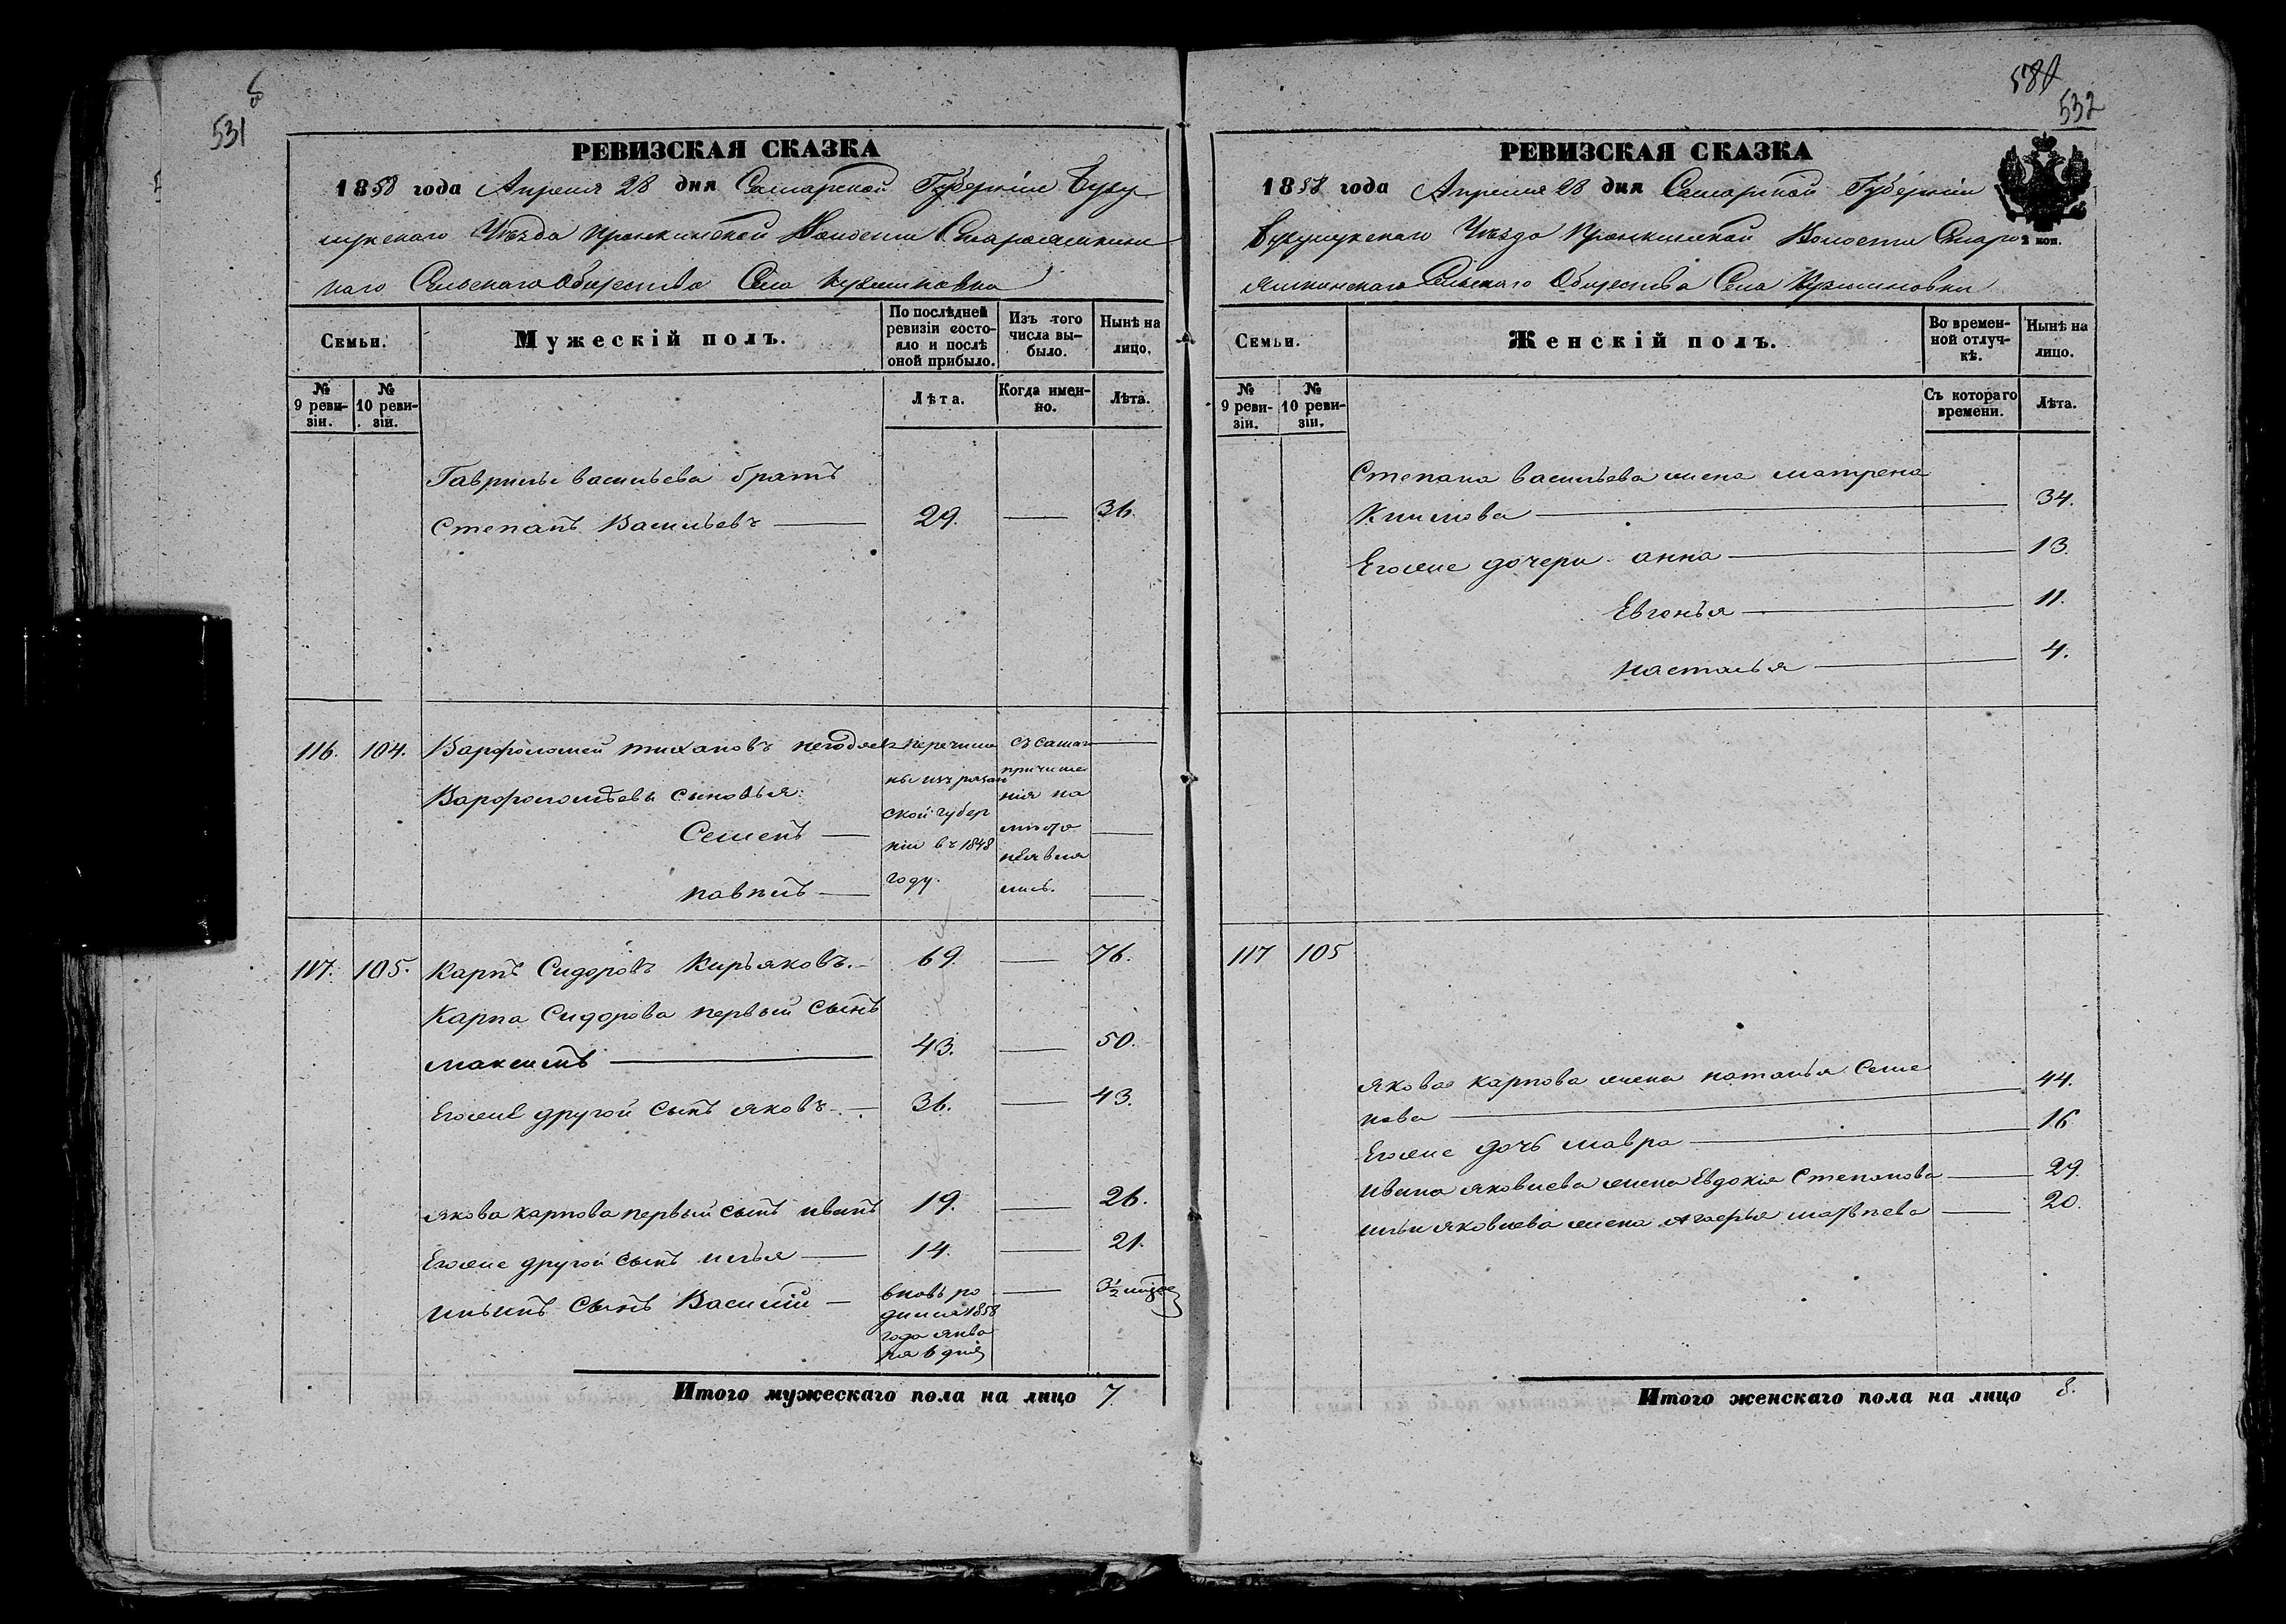 531
РЕВИЗСКАЯ СКАЗКА
1858 года Апреля 28 дня Самарской Губернiи Бузу
лукскаго Уѣзда Пронкинской Волости Староашкин
наго Сельскаго Общества Села
Семьи.
Мужескiй полъ.
По послѣдней ревизiи состо-
яло и послѣ
оной прибыло.
Изъ того
числа вы-
было.
Нынѣ на
лицо.
№
9 реви-
зiи.
№
10 реви-
зiи.
Лѣта.
Когда имен-
но.
Лѣта.
Гаврилы васильева братъ
Степанъ Васильевъ — 29. — 36.
116. 104. Варфоломей тихановъ
Варфоломѣевы сыновья:
Семенъ —
павелъ —
перечисле
ны изъ рязан
ской губер
нiи въ 1848
году.
съ самаго
причисле
нiя на
мѣсто
неявля
лись.
117. 105. Карпъ Сидоровъ Кирьяковъ. 69. — 76.
Карпа Сидорова первый сынъ
максимъ — 43. — 50.
Егоже другой сынъ яковъ — 36. — 43.
якова карпова первый сынъ иванъ 19. — 26.
Егоже другой сынъ илья — 14. — 21.
ильинъ сынъ Василiй — вновь ро
дился 1858
года янва
ря 6 дня — 3½ мѣсяц
Итого мужескаго пола на лицо 7.
532
РЕВИЗСКАЯ СКАЗКА
1858 года Апреля 28 дня Самарской Губернiи
Бузулукскаго Уѣзда Пронкинской Волости Старо
2 коп.
ашкинскаго Сельскаго Общества Села
Семьи.
Женскiй полъ.
Во времен-
ной отлуч-
кѣ.
Нынѣ на
лицо.
№
9 реви-
зiи.
№
10 реви-
зiи.
Съ котораго
времени.
Лѣта.
Степана васильева жена матрена
Климова — 34.
Егоже дочери анна — 13.
Евгенья — 11.
настасья — 4.
117 105
якова карпова жена наталья Семе
нова — 44.
Егоже дочь мавра — 16
ивана яковлева жена Евдокiя степанова — 29.
ильи яковлева жена матвѣева — 20.
Итого женскаго пола на лицо 8.